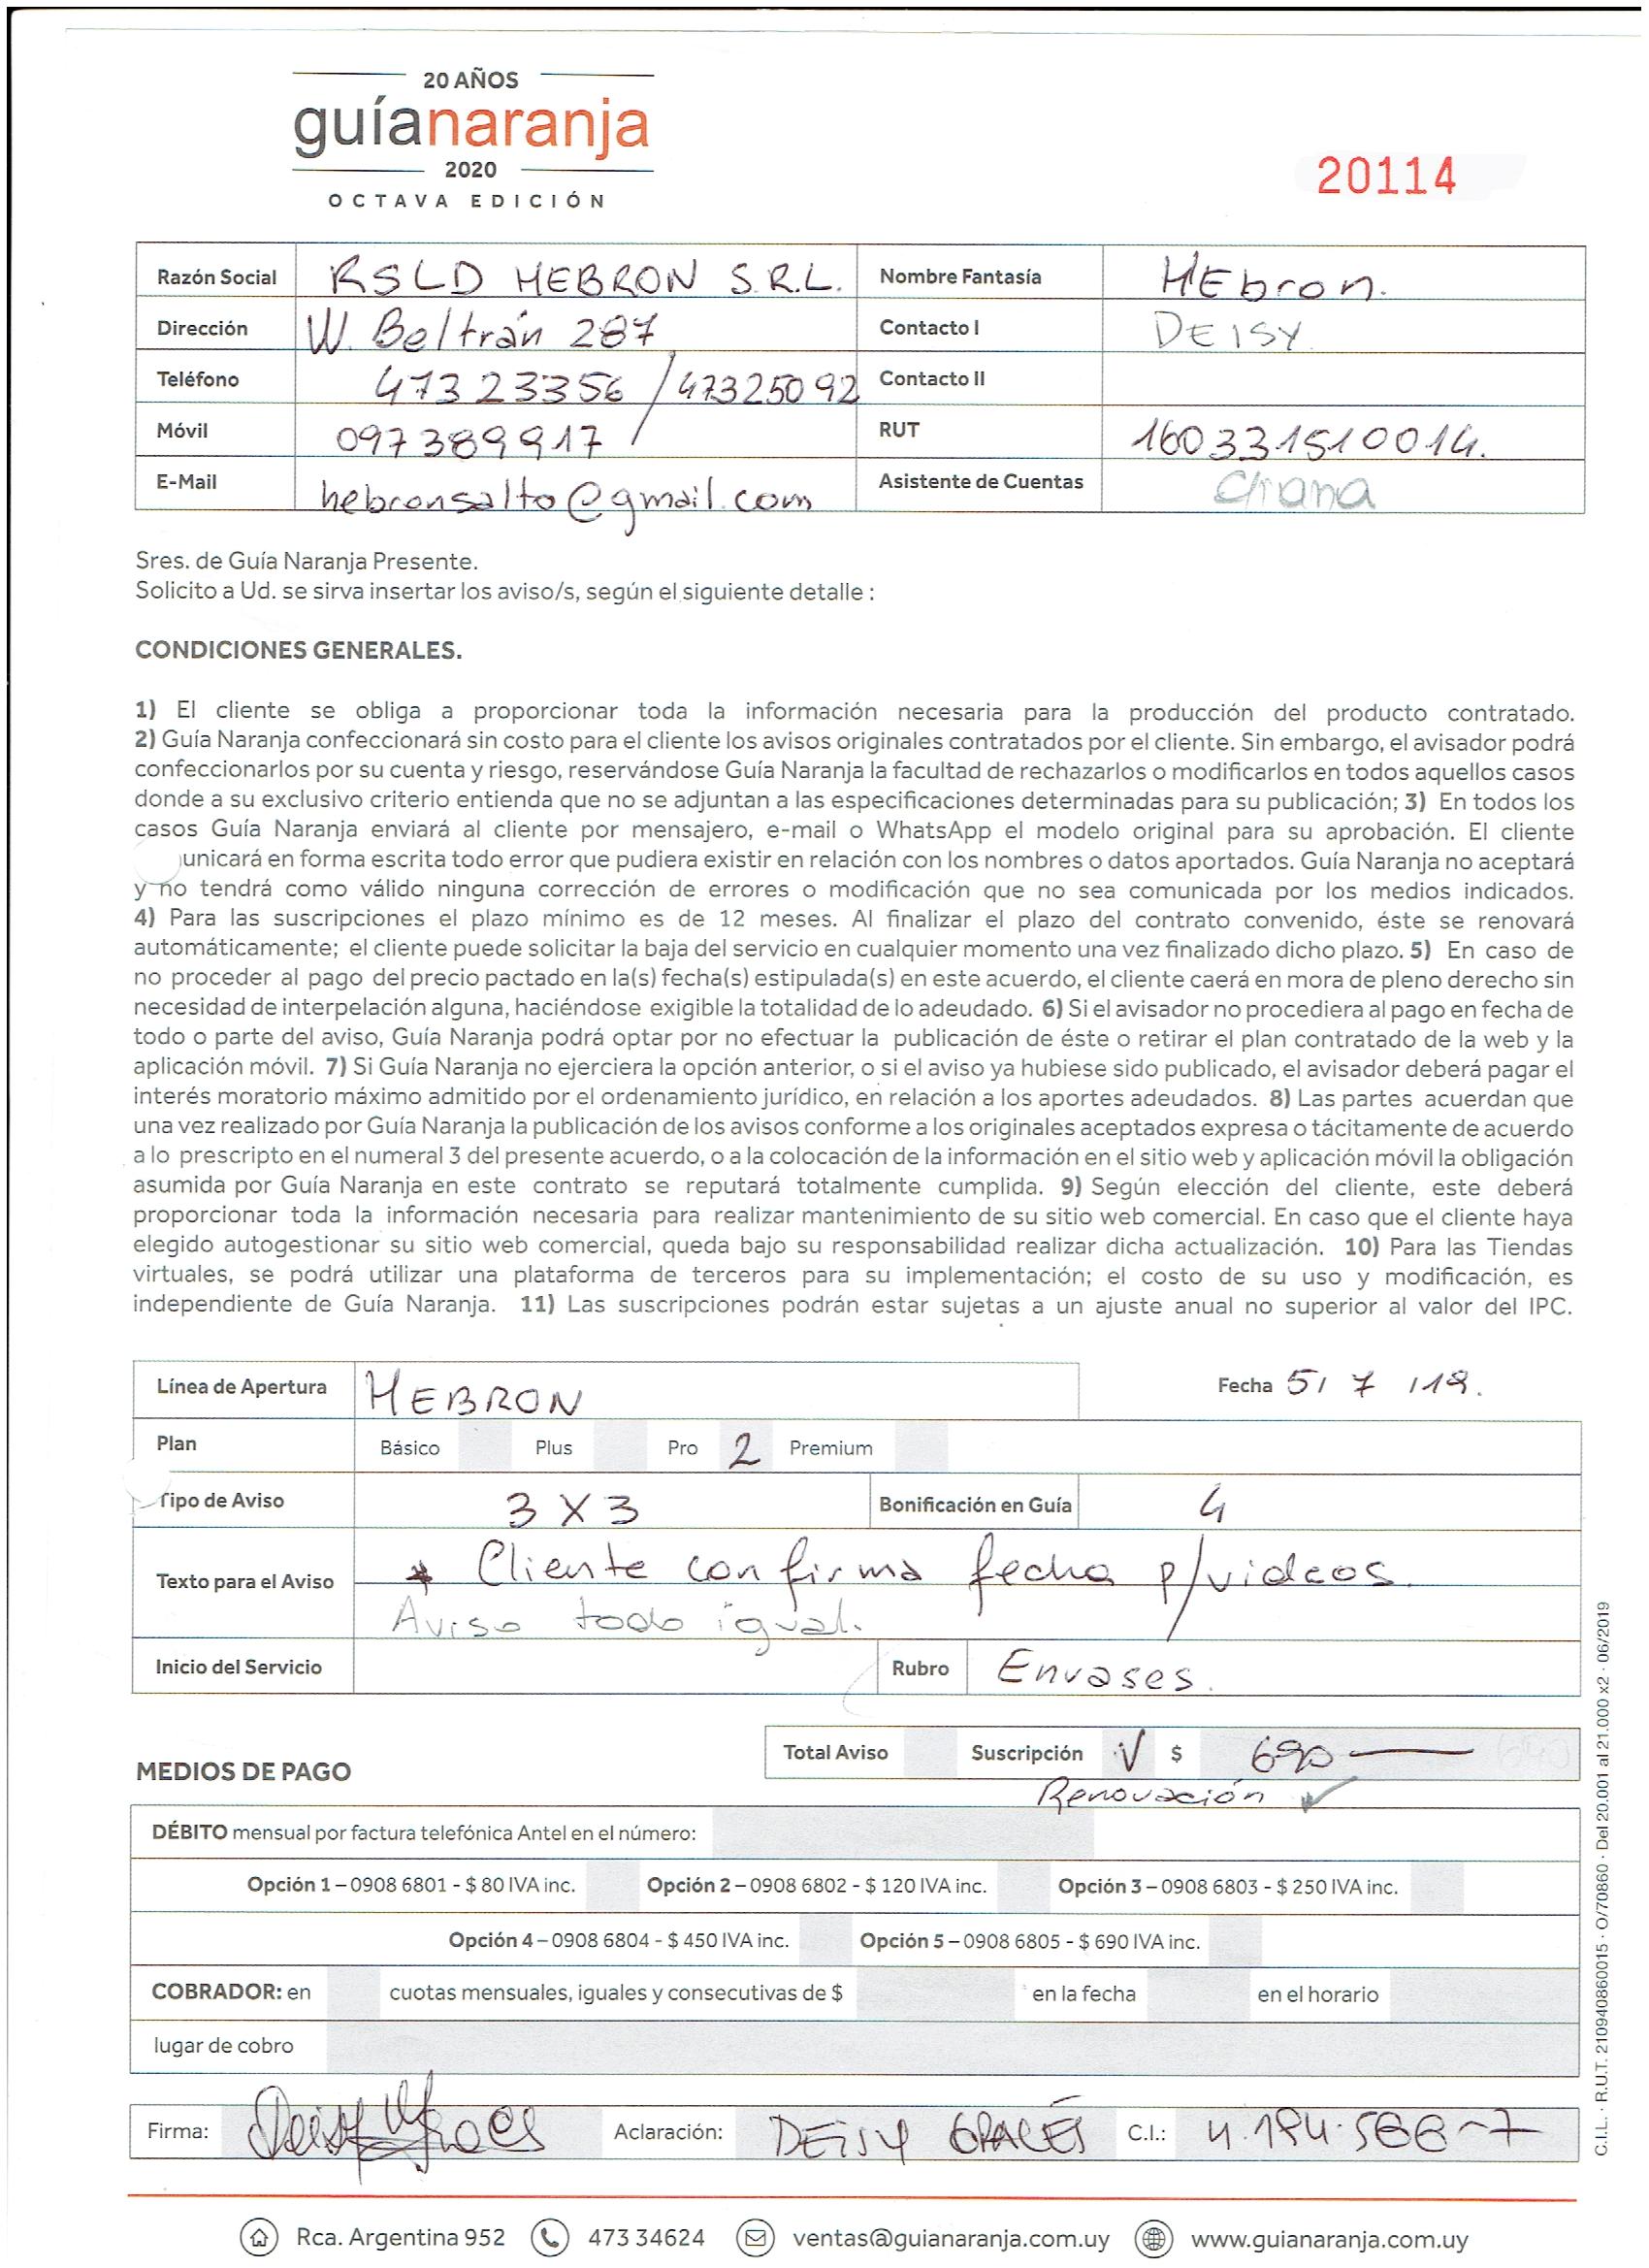 20 AÑOS
guíanaranja
2020
OCTAVA EDICIÓN
20114
Razón Social RSLD HEBRON S.R.L. Nombre Fantasía HEbron.
Dirección W. Beltrán 287 Contacto I DEISY
Teléfono 473 23356 / 47325092 Contacto II
Móvil 097389917 RUT 160331510014.
E-Mail hebronsalto@gmail.com Asistente de Cuentas
Sres. de Guía Naranja Presente.
Solicito a Ud. se sirva insertar los aviso/s, según el siguiente detalle :
CONDICIONES GENERALES.
1) El cliente se obliga a proporcionar toda la información necesaria para la producción del producto contratado.
2) Guía Naranja confeccionará sin costo para el cliente los avisos originales contratados por el cliente. Sin embargo, el avisador podrá
confeccionarlos por su cuenta y riesgo, reservándose Guía Naranja la facultad de rechazarlos o modificarlos en todos aquellos casos
donde a su exclusivo criterio entienda que no se adjuntan a las especificaciones determinadas para su publicación; 3) En todos los
casos Guía Naranja enviará al cliente por mensajero, e-mail o WhatsApp el modelo original para su aprobación. El cliente
unicará en forma escrita todo error que pudiera existir en relación con los nombres o datos aportados. Guía Naranja no aceptará
y no tendrá como válido ninguna corrección de errores o modificación que no sea comunicada por los medios indicados.
4) Para las suscripciones el plazo mínimo es de 12 meses. Al finalizar el plazo del contrato convenido, éste se renovará
automáticamente; el cliente puede solicitar la baja del servicio en cualquier momento una vez finalizado dicho plazo. 5) En caso de
no proceder al pago del precio pactado en la(s) fecha(s) estipulada(s) en este acuerdo, el cliente caerá en mora de pleno derecho sin
necesidad de interpelación alguna, haciéndose exigible la totalidad de lo adeudado. 6) Si el avisador no procediera al pago en fecha de
todo o parte del aviso, Guía Naranja podrá optar por no efectuar la publicación de éste o retirar el plan contratado de la web y la
aplicación móvil. 7) Si Guía Naranja no ejerciera la opción anterior, o si el aviso ya hubiese sido publicado, el avisador deberá pagar el
interés moratorio máximo admitido por el ordenamiento jurídico, en relación a los aportes adeudados. 8) Las partes acuerdan que
una vez realizado por Guía Naranja la publicación de los avisos conforme a los originales aceptados expresa o tácitamente de acuerdo
a lo prescripto en el numeral 3 del presente acuerdo, o a la colocación de la información en el sitio web y aplicación móvil la obligación
asumida por Guía Naranja en este contrato se reputará totalmente cumplida. 9) Según elección del cliente, este deberá
proporcionar toda la información necesaria para realizar mantenimiento de su sitio web comercial. En caso que el cliente haya
elegido autogestionar su sitio web comercial, queda bajo su responsabilidad realizar dicha actualización. 10) Para las Tiendas
virtuales, se podrá utilizar una plataforma de terceros para su implementación; el costo de su uso y modificación, es
independiente de Guía Naranja. 11) Las suscripciones podrán estar sujetas a un ajuste anual no superior al valor del IPC.
Línea de Apertura HEBRON Fecha 5/ 7 /19.
Plan Básico Plus Pro 2 Premium
Tipo de Aviso 3 X 3 Bonificación en Guía 4
Texto para el Aviso * Cliente confirma fecha p/videos.
Aviso todo igual.
Inicio del Servicio Rubro Envases.
Total Aviso Suscripción V $ 690
MEDIOS DE PAGO
Renovación ✓
DÉBITO mensual por factura telefónica Antel en el número:
Opción 1 – 0908 6801 - $ 80 IVA inc. Opción 2 – 0908 6802 - $ 120 IVA inc. Opción 3 – 0908 6803 - $ 250 IVA inc.
Opción 4 – 0908 6804 - $ 450 IVA inc. Opción 5 – 0908 6805 - $ 690 IVA inc.
COBRADOR: en cuotas mensuales, iguales y consecutivas de $ en la fecha en el horario
lugar de cobro
Firma: Aclaración: DEISY C.I.:
Rca. Argentina 952 473 34624 ventas@guianaranja.com.uy www.guianaranja.com.uy
C.I.L. · R.U.T. 210940860015 · O/70860 · Del 20.001 al 21.000 x2 · 06/2019